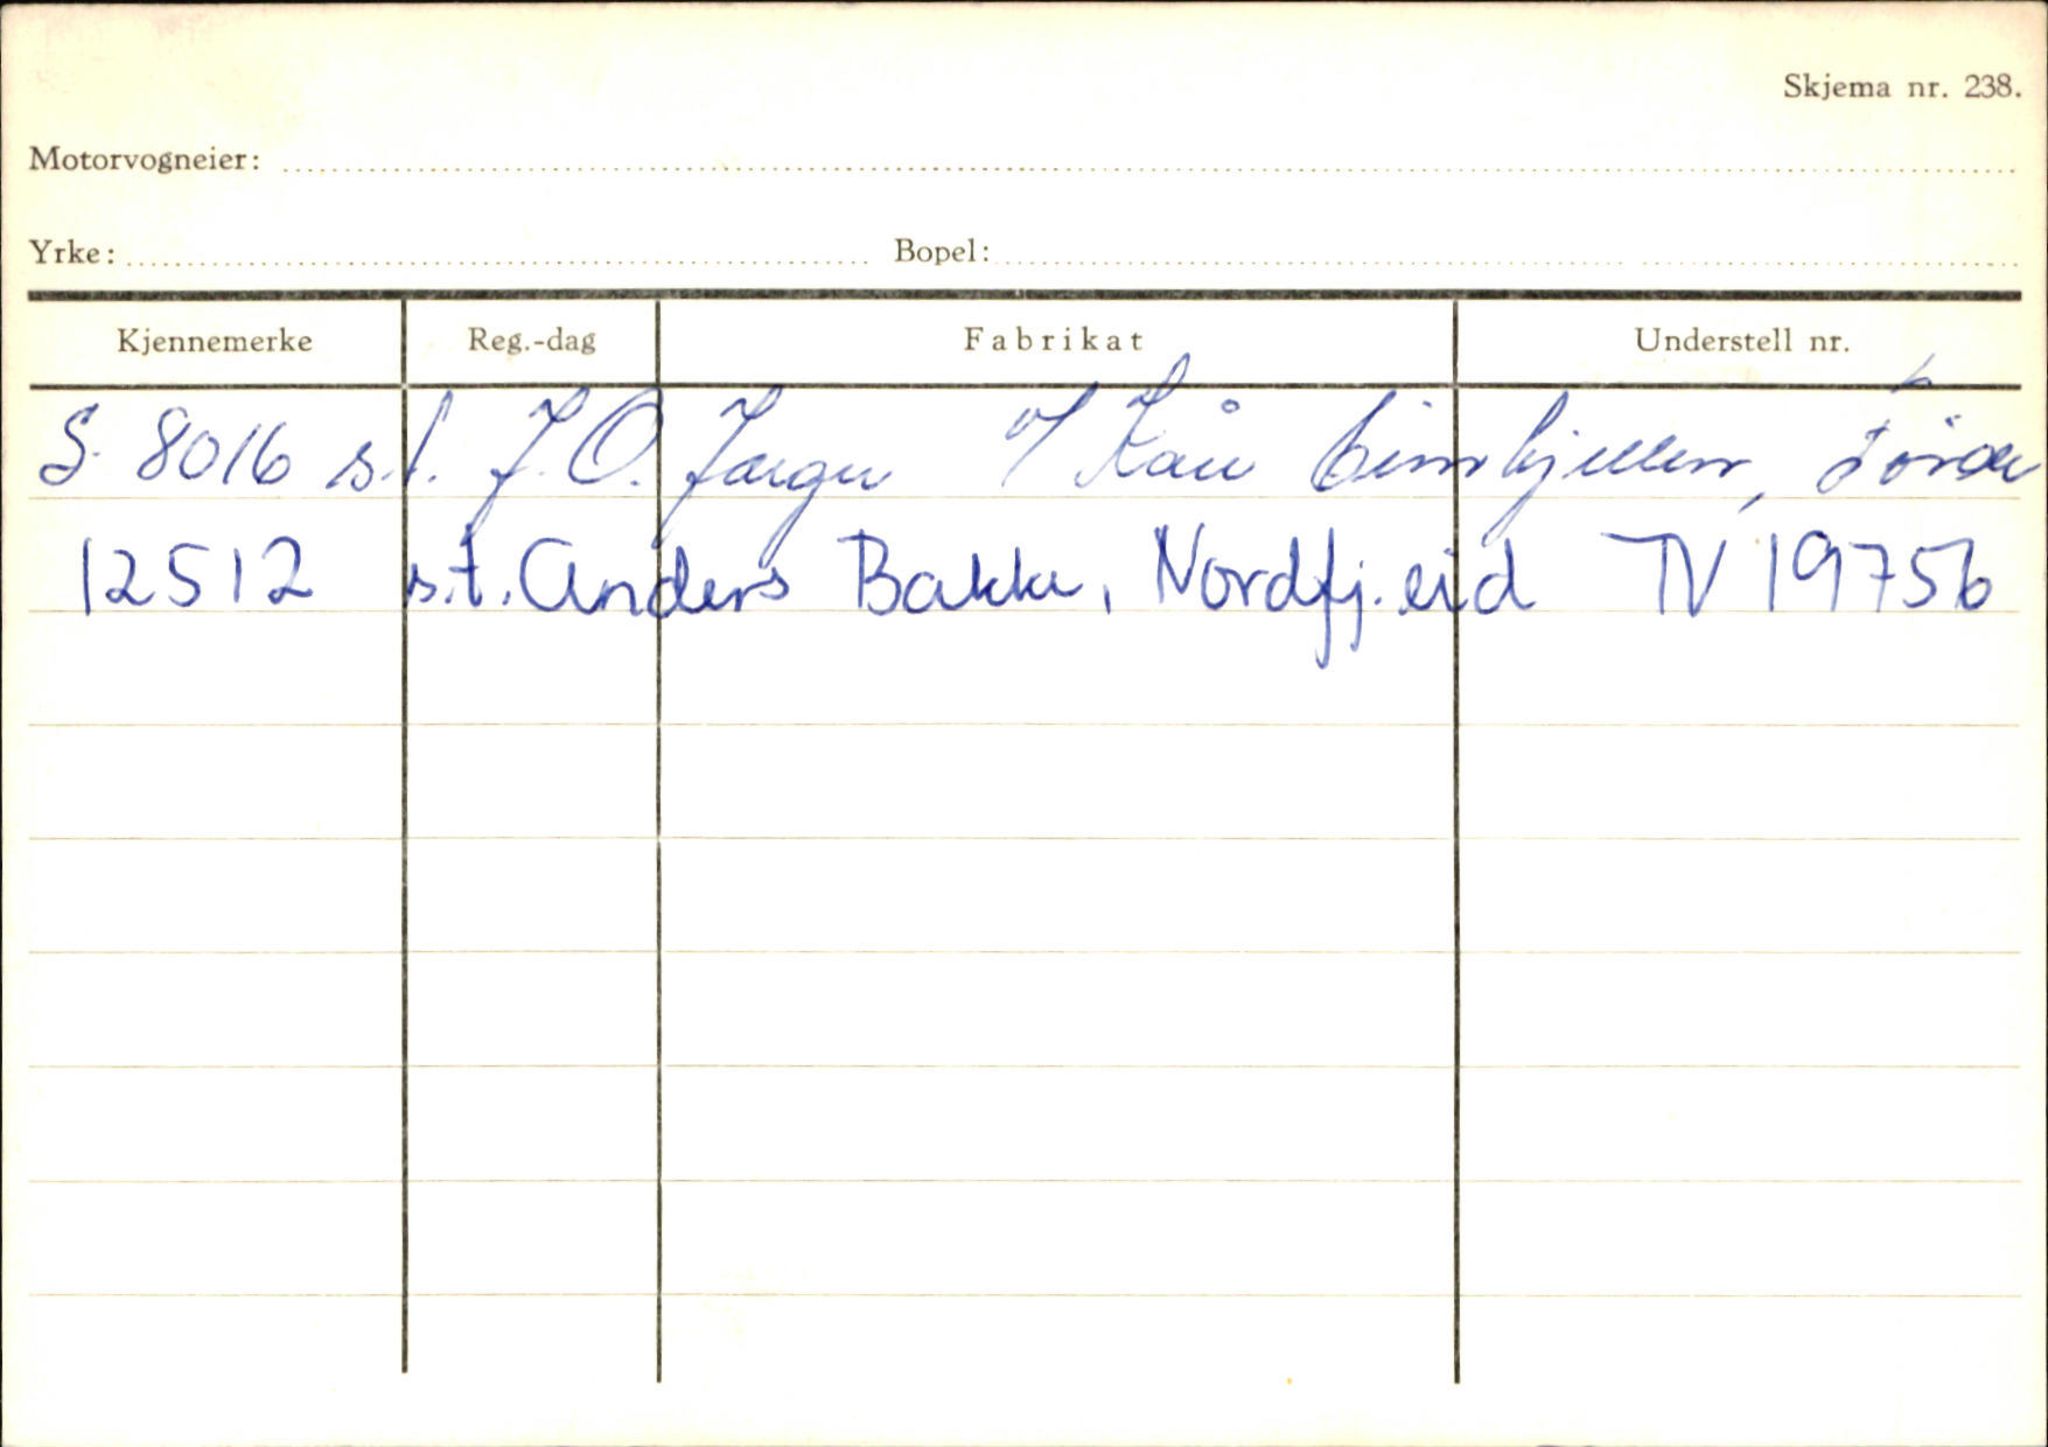 Skjema nr. 238.
Motorvogneier:
Yrke: Bopel:
Kjennemerke Reg.-dag Fabrikat Understell nr.
S. 8016 s.t. J.O. % Kåre Førde
12512 s.t. Anders Bakke, Nordfj.eid TV 19756